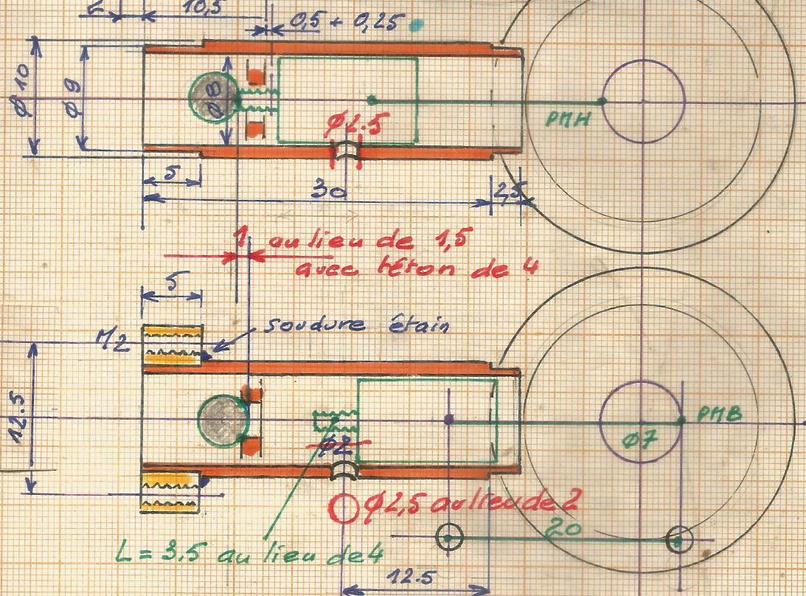 10,5
0,5 + 0,25
Ø 10
Ø 9
Ø8
Ø2.5
PMH
5
30
2,5
1 au lieu de 1,5
avec téton de 4
5
M2
soudure étain
12.5
PMB
Ø7
Ø2
Ø2,5 au lieu de 2
20
L = 3.5 au lieu de 4
12.5